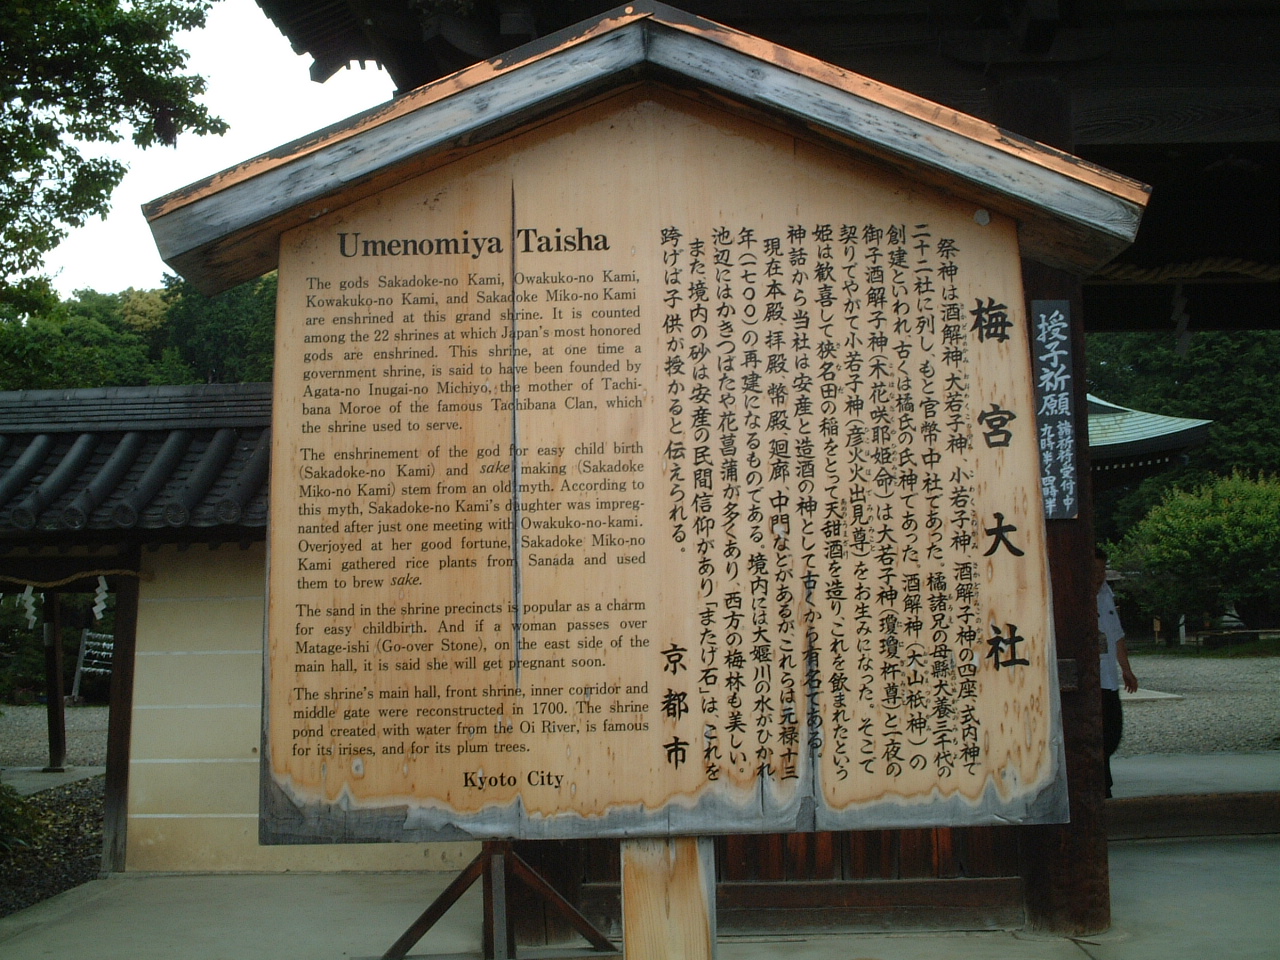 Umenomiya Taisha
The gods Sakadoke-no Kami, Owakuko-no Kami,
Kowakuko-no Kami, and Sakadoke Miko-no Kami
are enshrined at this grand shrine. It is counted
among the 22 shrines at which Japan's most honored
gods are enshrined. This shrine, at one time a
government shrine, is said to have been founded by
Agata-no Inugai-no Michiyo, the mother of Tachi-
bana Moroe of the famous Tachibana Clan, which
the shrine used to serve.
The enshrinement of the god for easy child birth
(Sakadoke-no Kami) and sake making (Sakadoke
Miko-no Kami) stem from an old myth. According to
this myth, Sakadoke-no Kami's daughter was impreg-
nanted after just one meeting with Owakuko-no-kami.
Overjoyed at her good fortune, Sakadoke Miko-no
Kami gathered rice plants from Sanada and used
them to brew sake.
The sand in the shrine precincts is popular as a charm
for easy childbirth. And if a woman passes over
Matage-ishi (Go-over Stone), on the east side of the
main hall, it is said she will get pregnant soon.
The shrine's main hall, front shrine, inner corridor and
middle gate were reconstructed in 1700. The shrine
pond created with water from the Oi River, is famous
for its irises, and for its plum trees.
Kyoto City
梅宮大社
祭神は酒解神、大若子神、小若子神、酒解子神の四座、式内神で
二十二社に列し、もと官幣中社であった。橘諸兄の母県犬養三千代の
創建といわれ、古くは橘氏の氏神であった。酒解神(大山祇神)の
御子酒解子神(木花咲耶姫命)は大若子神(瓊瓊杵尊)と一夜の
契りでやがて小若子神(彦火火出見尊)をお生みになった。そこで
姫は歓喜して狭名田の稲をとって天甜酒を造り、これを飲まれたという
神話から当社は安産と造酒の神として古くから有名である。
現在本殿、拝殿、幣殿、廻廊、中門などがあるが、これらは元禄十三
年(一七〇〇)の再建になるものである。境内には大堰川の水がひかれ
池辺にはかきつばたや花菖蒲が多くあり、西方の梅林も美しい。
また、境内の砂は安産の民間信仰があり「またげ石」は、これを
跨げば子供が授かると伝えられる。
京都市
授子祈願